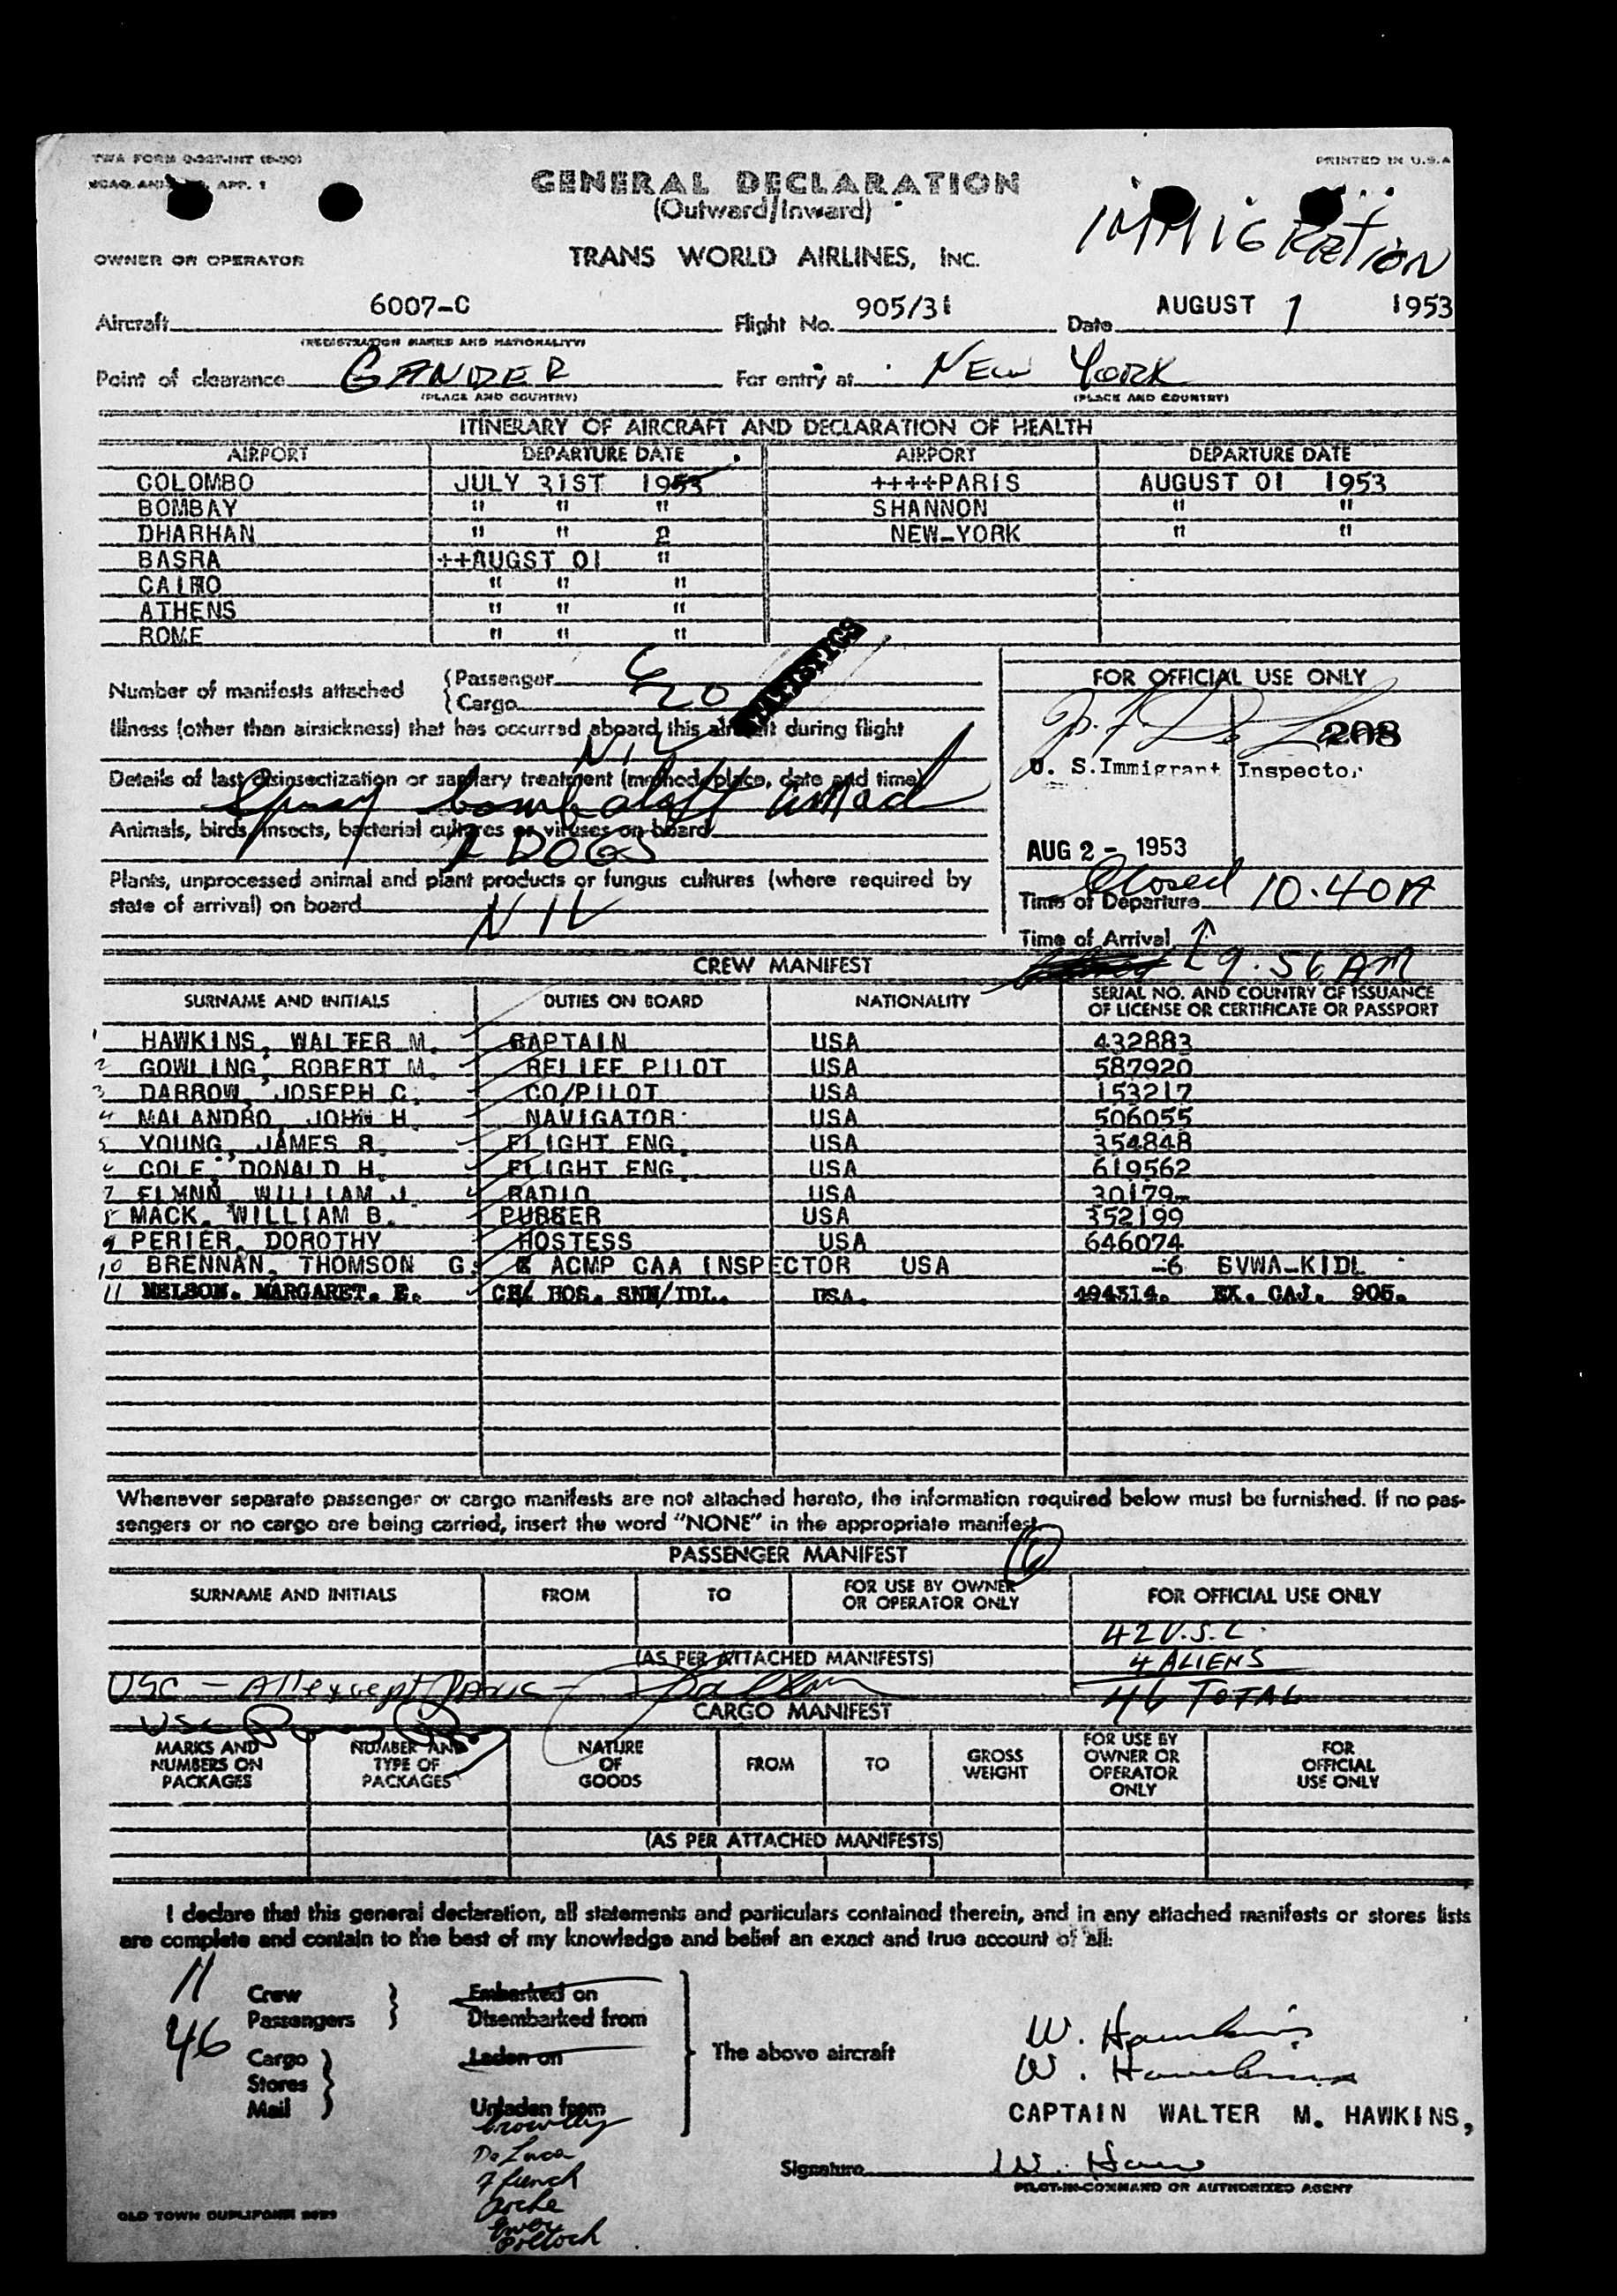 TWA FORM
PRINTED IN U.S.A
APP. 1
GENERAL DECLARATION
(Outward/Inward)
IMMIGRATION
OWNER OR OPERATOR
TRANS WORLD AIRLINES, INC.
Aircraft 6007-C Flight No. 905/31 Date AUGUST 1 1953
(REGISTRATION MARKS AND NATIONALITY)
Point of clearance GANDER For entry at NEW YORK
(PLACE AND COUNTRY) (PLACE AND COUNTRY)
ITINERARY OF AIRCRAFT AND DECLARATION OF HEALTH
AIRPORT DEPARTURE DATE AIRPORT DEPARTURE DATE
COLOMBO JULY 31ST 1953 ++++PARIS AUGUST 01 1953
BOMBAY " " " SHANNON " "
DHARHAN " " NEW-YORK " "
BASRA ++AUGST 01 "
CAIRO " " "
ATHENS " " "
ROME " " "
STATISTICS
Number of manifests attached
Passenger
Cargo
Illness (other than airsickness) that has occurred aboard this aircraft during flight
NIL
Details of last disinsectization or sanitary treatment (method, place, date and time)
Spray bomb
Animals, birds, insects, bacterial cultures or viruses on board
2 DOGS
Plants, unprocessed animal and plant products or fungus cultures (where required by
state of arrival) on board
NIL
FOR OFFICIAL USE ONLY
208
U. S. Immigrant Inspector
AUG 2 - 1953
Closed
Time of Departure 10.40A
Time of Arrival
9.56 AM
CREW MANIFEST
SURNAME AND INITIALS DUTIES ON BOARD NATIONALITY SERIAL NO. AND COUNTRY OF ISSUANCE
OF LICENSE OR CERTIFICATE OR PASSPORT
1 HAWKINS, WALTER M. CAPTAIN USA 432883
2 GOWLING, ROBERT M. RELIEF PILOT USA 587920
3 DARROW, JOSEPH C. CO/PILOT USA 153217
4 MALANDRO, JOHN H. NAVIGATOR USA 506055
5 YOUNG, JAMES R. FLIGHT ENG. USA 354848
6 COLE, DONALD H. FLIGHT ENG. USA 619562
7 WILLIAM J RADIO USA 30179-
8 MACK, WILLIAM B. PURSER USA 352199
9 PERIER, DOROTHY HOSTESS USA 646074
10 BRENNAN, THOMSON G. ACMP CAA INSPECTOR USA -6 SVWA-KIDL
11 NELSON. MARGARET. E. CH/ HOS. SNN/IDL. USA. 194514. EX. CAJ. 905.
Whenever separate passenger or cargo manifests are not attached hereto, the information required below must be furnished. If no pas-
sengers or no cargo are being carried, insert the word "NONE" in the appropriate manifest
PASSENGER MANIFEST
6
SURNAME AND INITIALS FROM TO FOR USE BY OWNER
OR OPERATOR ONLY FOR OFFICIAL USE ONLY
42 U.S.C.
(AS PER ATTACHED MANIFESTS) 4 ALIENS
USC - All except
46 TOTAL
CARGO MANIFEST
USC
MARKS AND
NUMBERS ON
PACKAGES
NUMBER AND
TYPE OF
PACKAGES
NATURE
OF
GOODS
FROM
TO
GROSS
WEIGHT
FOR USE BY
OWNER OR
OPERATOR
ONLY
FOR
OFFICIAL
USE ONLY
(AS PER ATTACHED MANIFESTS)
I declare that this general declaration, all statements and particulars contained therein, and in any attached manifests or stores lists
are complete and contain to the best of my knowledge and belief an exact and true account of all:
11 Crew
46 Passengers
Cargo
Stores
Mail
Embarked on
Disembarked from
Laden on
Unladen from
The above aircraft
W. Hawkins
W. Hawkins
CAPTAIN WALTER M. HAWKINS,
Signature
PILOT-IN-COMMAND OR AUTHORIZED AGENT
Crowley
De Luca
French
Roche
Pollock
OLD TOWN